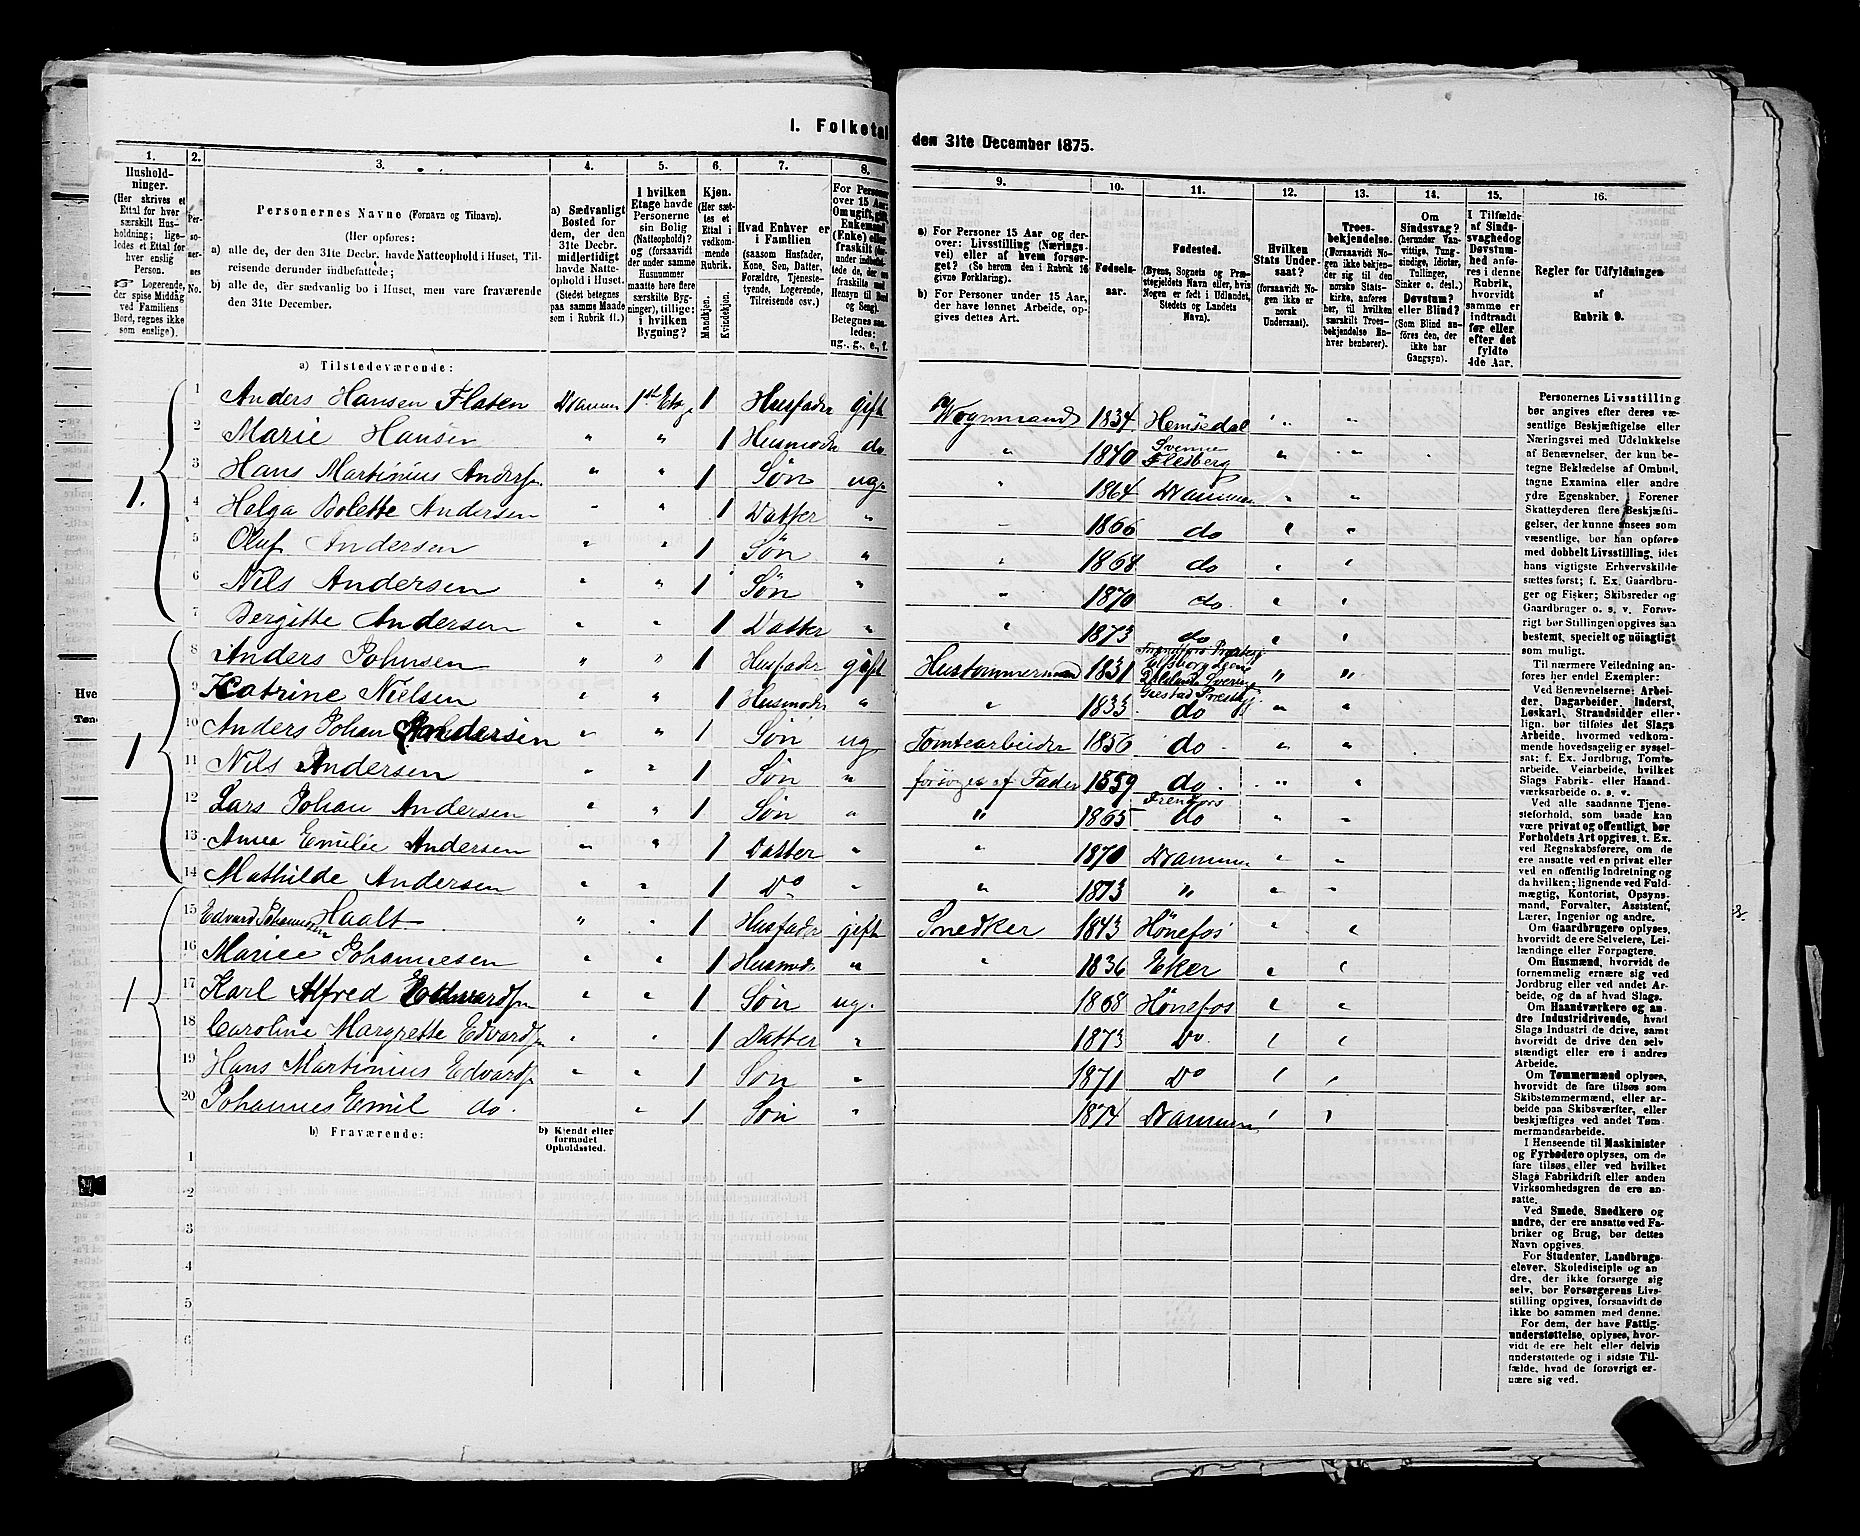 I. Folketal
den 31te December 1875.
1. 2. 3. 4. 5. 6. 7. 8. 9. 10. 11. 12. 13. 14. 15. 16.
Husholdninger.
(Her skrives et
Ettal for hver
særskilt Husholdning;
ligeledes et Ettal for
hver enslig
Person.
Logerende,
der spise Middag
ved Familiens
Bord, regnes ikke
som enslige).
Personernes No.
Personernes Navne (Fornavn og Tilnavn).
(Her opføres:
a) alle de, der den 31te Decbr. havde Natteophold i Huset, Tilreisende derunder indbefattede;
b) alle de, der sædvanlig bo i Huset, men vare fraværende
den 31te December.
a) Sædvanligt
Bosted for
dem, der den
31te Decbr.
midlertidigt
havde Natteophold i Huset.
(Stedet betegnes
paa samme Maade
som i Rubrik 11.)
I hvilken
Etage havde
Personerne
sin Bolig
(Natteophold)?
(forsaavidt
der under samme
Husnummer
maatte høre flere
særskilte Bygninger),
tillige:
i hvilken
Bygning?
Kjøn.
(Her sættes
et Ettal i
vedkommende
Rubrik.
Mandkjøn.
Kvindekjøn.
Hvad Enhver er
i Familien
(saasom Husfader,
Kone, Søn, Datter,
Forældre, Tjenestetyende, Logerende,
Tilreisende osv.)
For Personer
over 15 Aar:
Om ugift, gift,
Enkemand
(Enke) eller
fraskilt
Betegnes saaledes:
ug., g., e., f.
a) For Personer 15 Aar og derover: Livsstilling (Næringsvei) eller af hvem forsørget? (Se herom den i Rubrik 16
givne Forklaring).
b) For Personer under 15 Aar,
der have lønnet Arbeide, opgives dettes Art.
Fødselsaar.
Fødested.
(Byens, Sognets og Præstegjeldets Navn eller, hvis
Nogen er født i Udlandet,
Stedets og Landets
Navn).
Hvilken
Stats Undersaat?
(forsaavidt Nogen ikke er
norsk
Undersaat).
Troesbekjendelse.
(Forsaavidt Nogen ikke bekjender sig til den
norske Statskirke, anføres
her, til hvilken
særskilt Troesbekjendelse Enhver henhører).
Om
Sindssvag?
(herunder Vanvittige, Tungsindige, Idioter,
Tullinger,
Sinker o. desl.)
Døvstum?
eller Blind?
(Som Blind anføres den, der
ikke har
Gangsyn).
I Tilfælde
af Sindssvaghed og
Døvstumhed anføres i denne
Rubrik,
hvorvidt
samme er
indtraadt
før eller
efter det
fyldte
4de Aar.
Regler for Udfyldningen
af
Rubrik 9.
a) Tilstedeværende:
1. 1 Anders Hansen Flaten Drammen 1ste Etage 1 Husfader gift Vognmand 1834 Hemsedal
2 Marie Hansen " " 1 Husmoder do " 1840 Svenne Flesberg
3 Hans Martinius Anders. " " 1 Søn ug. " 1864 Drammen
4 Helga Bolette Andersen " " 1 Datter " 1866 do
5 Oluf Andersen " " 1 Søn " " 1868 do
6 Nils Andersen " " 1 Søn " " 1870 do
7 Bergitte Andersen " " 1 Datter " " 1873 do
1 8 Anders Johnsen " " 1 Husfader gift Hustømmermand 1831
9 Katrine Nielsen " " 1 Husmoder " " 1833 do
10 Anders Johan Andersen " " 1 Søn ug. Tomtearbeider 1856 do
11 Nils Andersen " " 1 Søn " forsørges af Fader 1859 do
12 Lars Johan Andersen " " 1 Søn " " 1865 do
13 Anna Emilie Andersen " " 1 Datter " " 1870 Drammen
14 Mathilde Andersen " " 1 Do " " 1873 "
1 15 Edvard Johannesen Haalt " " 1 Husfader gift Snedker 1843 Hönefos
16 Mariee Johannesen " " 1 Husmoder " " 1836 Eker
17 Karl Alfred Edvards. " " 1 Søn ug. 1868 Hönefos
18 Caroline Margrette Edvards. " " 1 Datter " 1873 Do.
19 Hans Martinius Edvards. " " 1 Søn " 1871 Do
20 Johannes Emil do. " 1 Søn " 1874 Drammen
b) Fraværende:
b) Kjendt eller
formodet
Opholdssted.
1
2
3
4
5
6
Personernes Livsstilling
bør angives efter deres væsentlige Beskjæftigelse eller
Næringsvei med Udelukkelse
af Benævnelser, der kun betegne Beklædelse af Ombud,
tagne Examina eller andre
ydre Egenskaber. Forener
Skatteyderen flere Beskjæftigelser, der kunne ansees som
væsentlige, bør han opføres
med dobbelt Livsstilling, idet
hans vigtigste Erhvervskilde
sættes først; f. Ex. Gaardbruger og Fisker; Skibsreder og
Gaardbruger o. s. v. Forøvrigt bør Stillingen opgives saa
bestemt, specielt og nöiagtigt
som muligt.
Til nærmere Veiledning anføres her endel Exempler:
Ved Benævnelserne: Arbeider, Dagarbeider, Inderst,
Løskarl, Strandsidder eller
lign. bør tilføies det Slags
Arbeide, hvormed vedkommende hovedsagelig er sysselsat; f. Ex. Jordbrug, Tomtearbeide, Veiarbeide, hvilket
Slags Fabrik- eller Haandværksarbeide o. s. v.
Ved alle saadanne Tjenesteforhold, som baade kan
være privat og offentligt, bør
Forholdets Art opgives, t. Ex.
ved Regnskabsførere, om de
ere ansatte ved en privat eller
en offentlig Indretning og
da hvilken; lignende ved Fuldmægtig, Kontorist, Opsynsmand, Forvalter, Assistent,
Lærer, Ingeniør og andre.
Om Gaardbrugere oplyses,
hvorvidt de ere Selveiere, Leilændinge eller Forpagtere.
Om Husmænd, hvorvidt de
fornemmelig ernære sig ved
Jordbrug eller ved andet Arbeide, og da af hvad Slags.
Om Haandværkere og andre Industridrivende, hvad
Slags Industri de drive, samt
hvorvidt de drive den selvstændigt eller ere i andres
Arbeide.
Om Tømmermænd oplyses,
hvorvidt de fare tilsøs som
Skibstømmermænd, eller arbeide paa Skibsværfter, eller
beskjæftiges ved andet Tømmermandsarbeide.
I Henseende til Maskinister
og Fyrbødere oplyses, om de
fare tilsøs eller ved hvilket
Slags Fabrikdrift eller anden
Virksomhedsgren de ere ansatte.
Ved Smede, Snedkere og
andre, der ere ansatte ved Fabriker og Brug, bør dettes
Navn opgives.
For Studenter, Landbrugselever, Skoledisciple og andre, der ikke forsørge sig
selv, bør Forsørgerens Livsstilling opgives, forsaavidt de
ikke bo sammen med denne.
For dem, der have Fattigunderstøttelse, oplyses, hvorvidt de ere helt eller delvis
understøttede og i sidste Tilfælde, hvad de forøvrigt ernære sig ved.